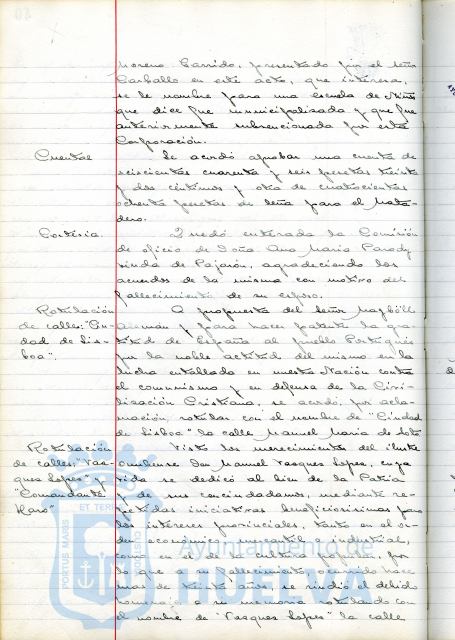 Moreno Garrido, presentado por el señor
Carballo en este acto, que interesa,
se le nombre para una escuela de Niños
que dice fue municipalizada y que fue
anteriormente subvencionada por esta
Corporación.
Cuentas
Se acordó aprobar una cuenta de
seiscientas cuarenta y seis pesetas treinta
y dos céntimos y otra de cuatrocientas
ochenta pesetas de leña para el Mata-
dero.
Cortesía.
Quedó enterada la Comisión
de oficio de Doña Ana María Parody
viuda de Pajarón, agradeciendo los
acuerdos de la misma con motivo del
fallecimiento de su esposo.
Rotulación
de calles: "Ciu-
dad de Lis-
boa".
A propuesta del señor
Aleman y para hacer patente la gra-
titud de España al pueblo Portugués
por la noble actitud del mismo en la
lucha entablada en nuestra Nación contra
el comunismo y en defensa de la Civi-
lización Cristiana, se acordó, por acla-
mación, rotular con el nombre de "Ciudad
de Lisboa" la calle Manuel María de Soto
Rotulación
de calles: "Vaz-
quez Lopez" y
"Comandante
Haro"
Visto los merecimientos del ilustre
onubense Don Manuel Vazquez Lopez, cuya
vida se dedicó al bien de la Patria
y de sus conciudadanos, mediante re-
petidas iniciativas beneficiosísimas para
los intereses provinciales, tanto en el or-
den económico, mercantil e industrial,
como en el de la cultura popular, por
lo que a su fallecimiento, ocurrido hace
mas de treinta años, se rindió el debido
homenaje a su memoria rotulando con
el nombre de "Vazquez Lopez" la calle
PORTUS MARIS
ET TERR
Ayuntamiento de
HUELVA